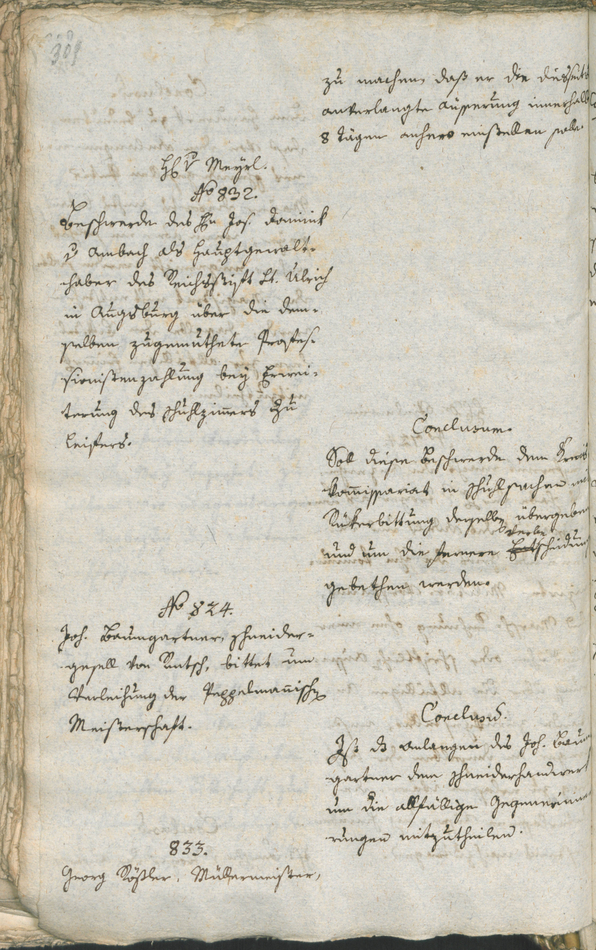 309
zu machen, daß er die diesseits
anverlangte Äusserung innerhalb
8 Tägen anhero einstellen solle.
Hr. v. Meyrl.
No 832.
Beschwerde des Hn Jos. Dominick
v Ambach als Hauptgewalt-
haber des Reichsstift St. Ulrich
in Augsburg über die dem-
selben zugemuthete Profes-
sionistenzahlung bey Erwei-
terung des Schulzimmers zu
Leifers.
Conclusum.
Soll diese Beschwerde dem Kreis
kommissariat in Schulsachen mit
Rükerbittung derselben übergeben
und um die fernere Entscheidung
gebethen werden.
No 824.
Joh. Baumgartner Schneider-
gesell von Rutsch, bittet um
Verleihung der Peppelmanischen
Meisterschaft.
Conclus.
Ist das Anlangen des Joh. Baum
gartner dem Schneiderhandwerk
um die allfällige Gegenerinne
rungen mitzutheilen.
833.
Georg Rößler, Müllermeister,